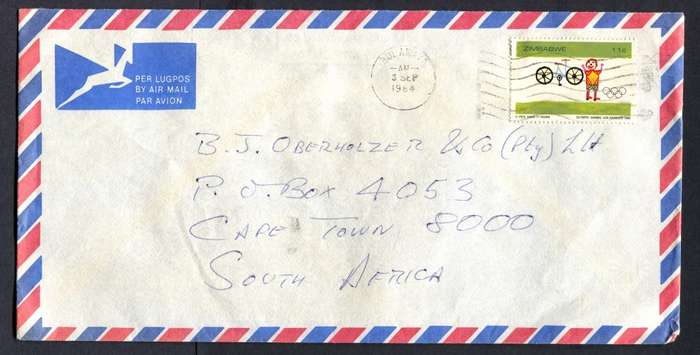 PER LUGPOS
BY AIR MAIL
PAR AVION
AM
3 SEP
1984
ZIMBABWE 11c
OLYMPIC GAMES LOS ANGELES 1984
B. J. OBERHOLZER & Co (Pty) Ltd
P. O. BOX 4053
CAPE TOWN 8000
SOUTH AFRICA